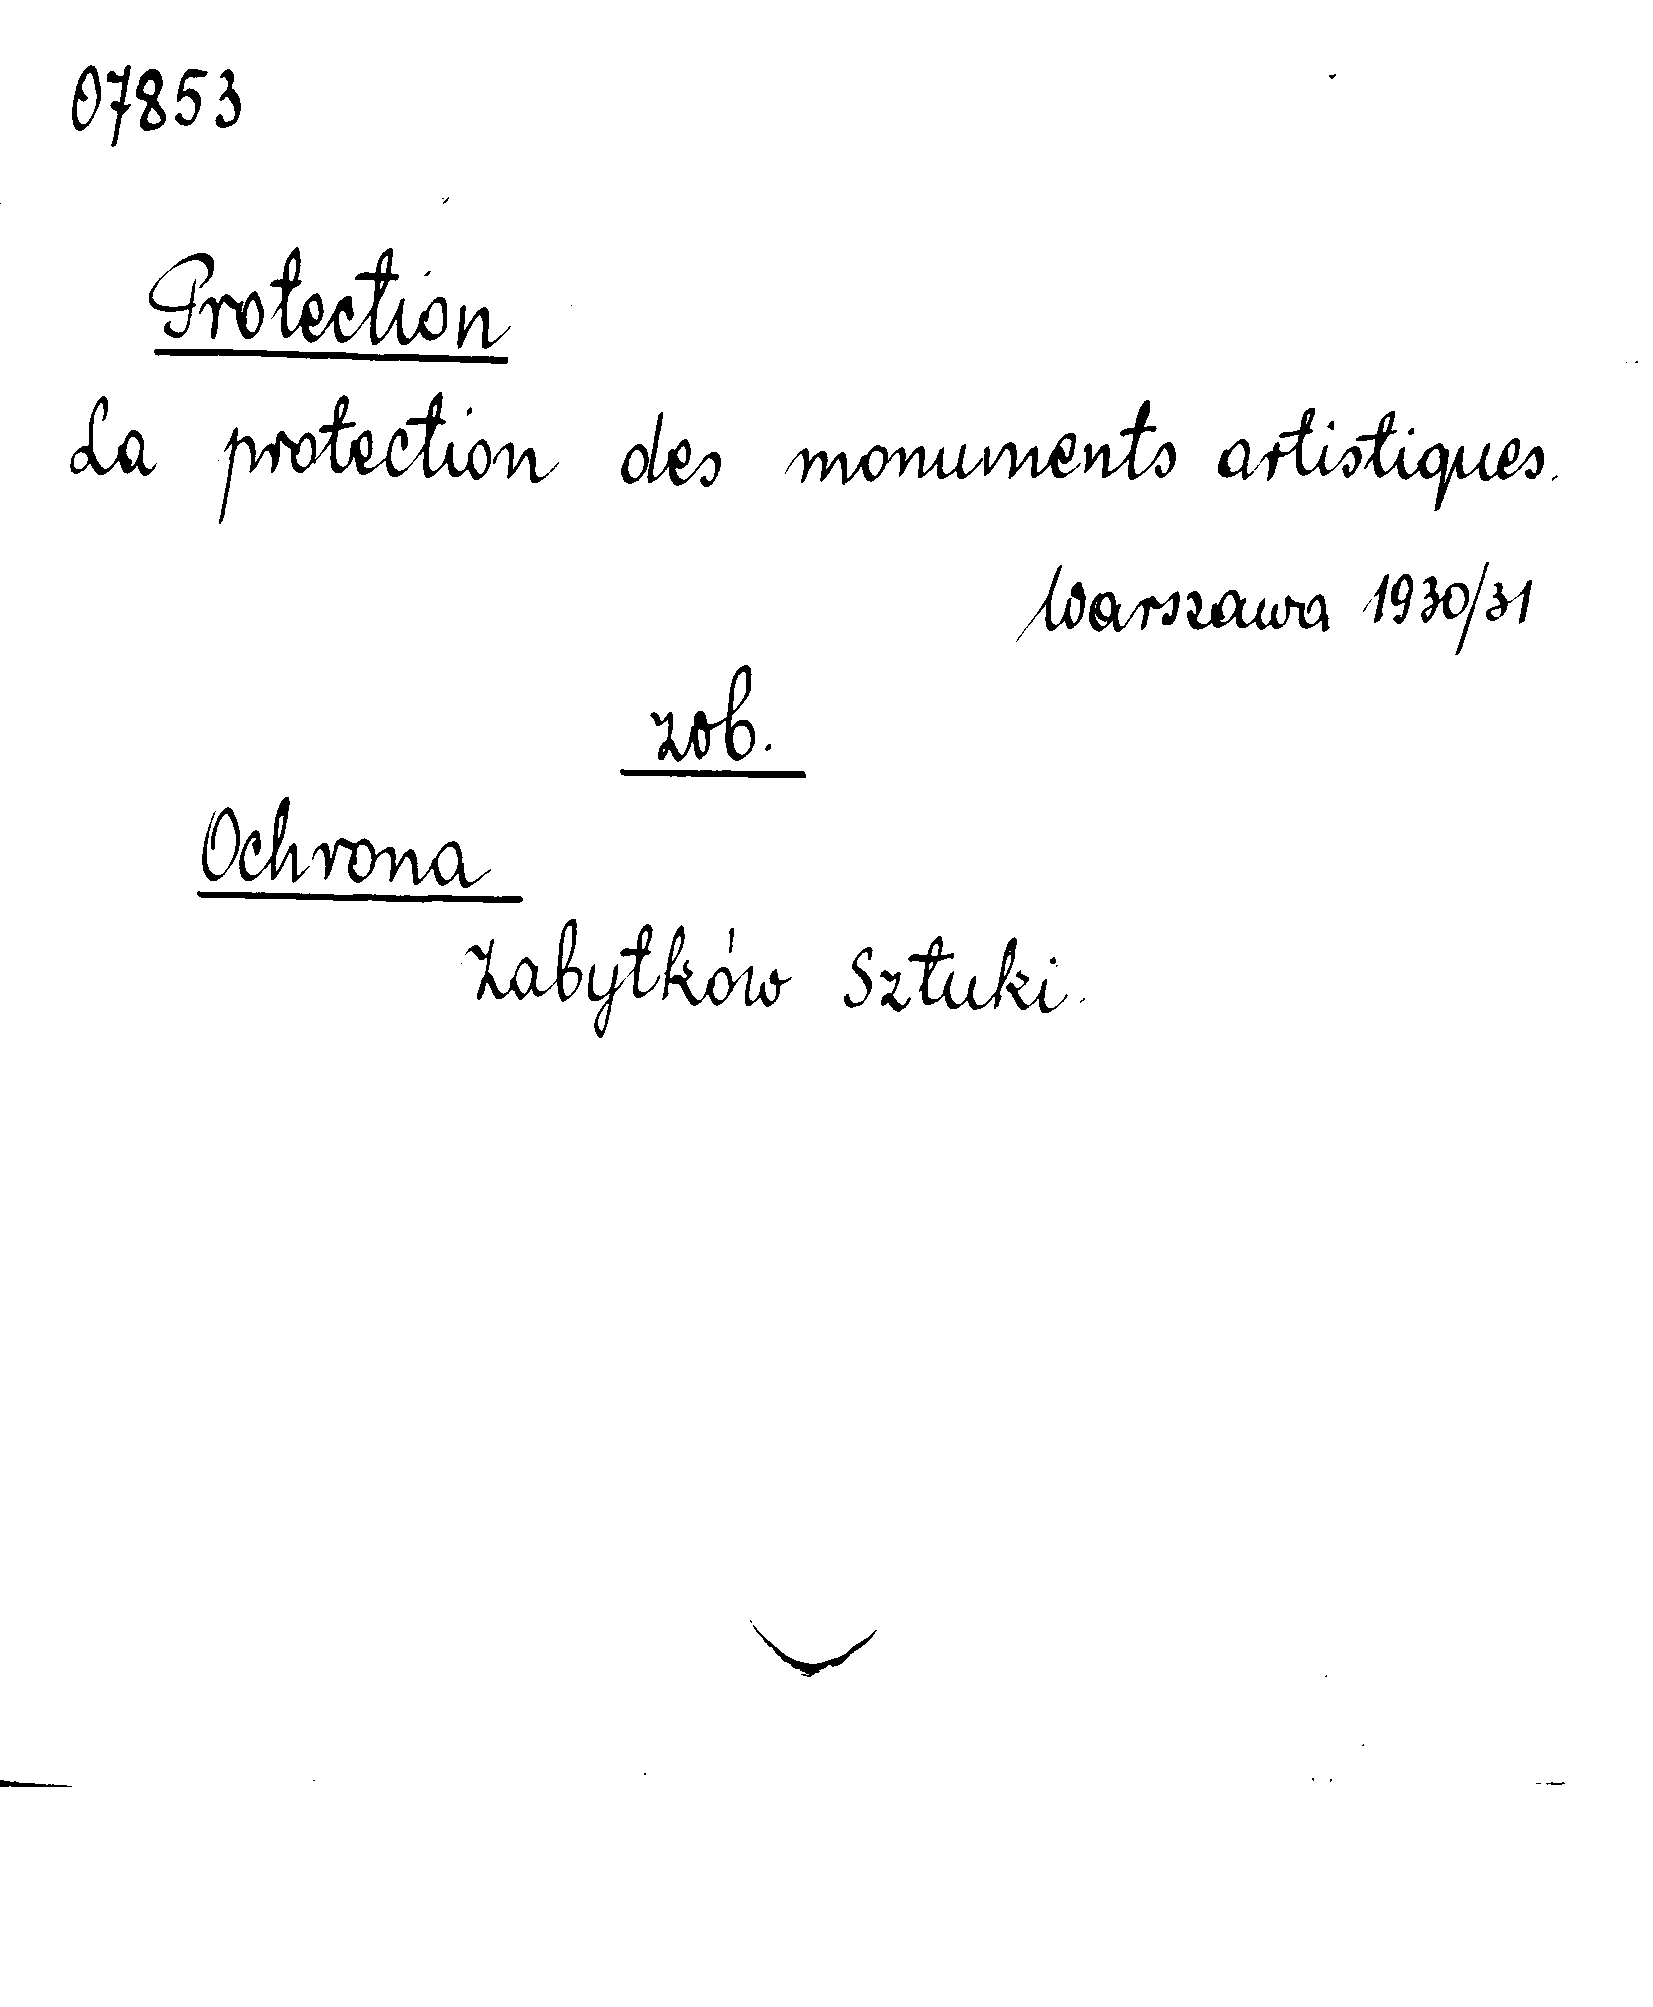 07853
Protection
La protection des monuments artistiques.
Warszawa 1930/31
zob.
Ochrona
Zabytków Sztuki.